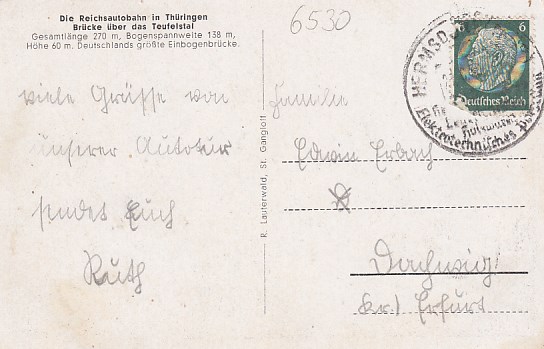 Die Reichsautobahn in Thüringen
Brücke über das Teufelstal
Gesamtlänge 270 m, Bogenspannweite 138 m,
Höhe 60 m. Deutschlands größte Einbogenbrücke.
6530
viele Grüsse von
unserer Autotur
sendet Euch
Ruth
R. Lauterwald, St. Gangloff
Familie
Edwin Erbach
Dachwig
Kr) Erfurt
6
Deutsches Reich
HERMSD
Elektrotechnisches